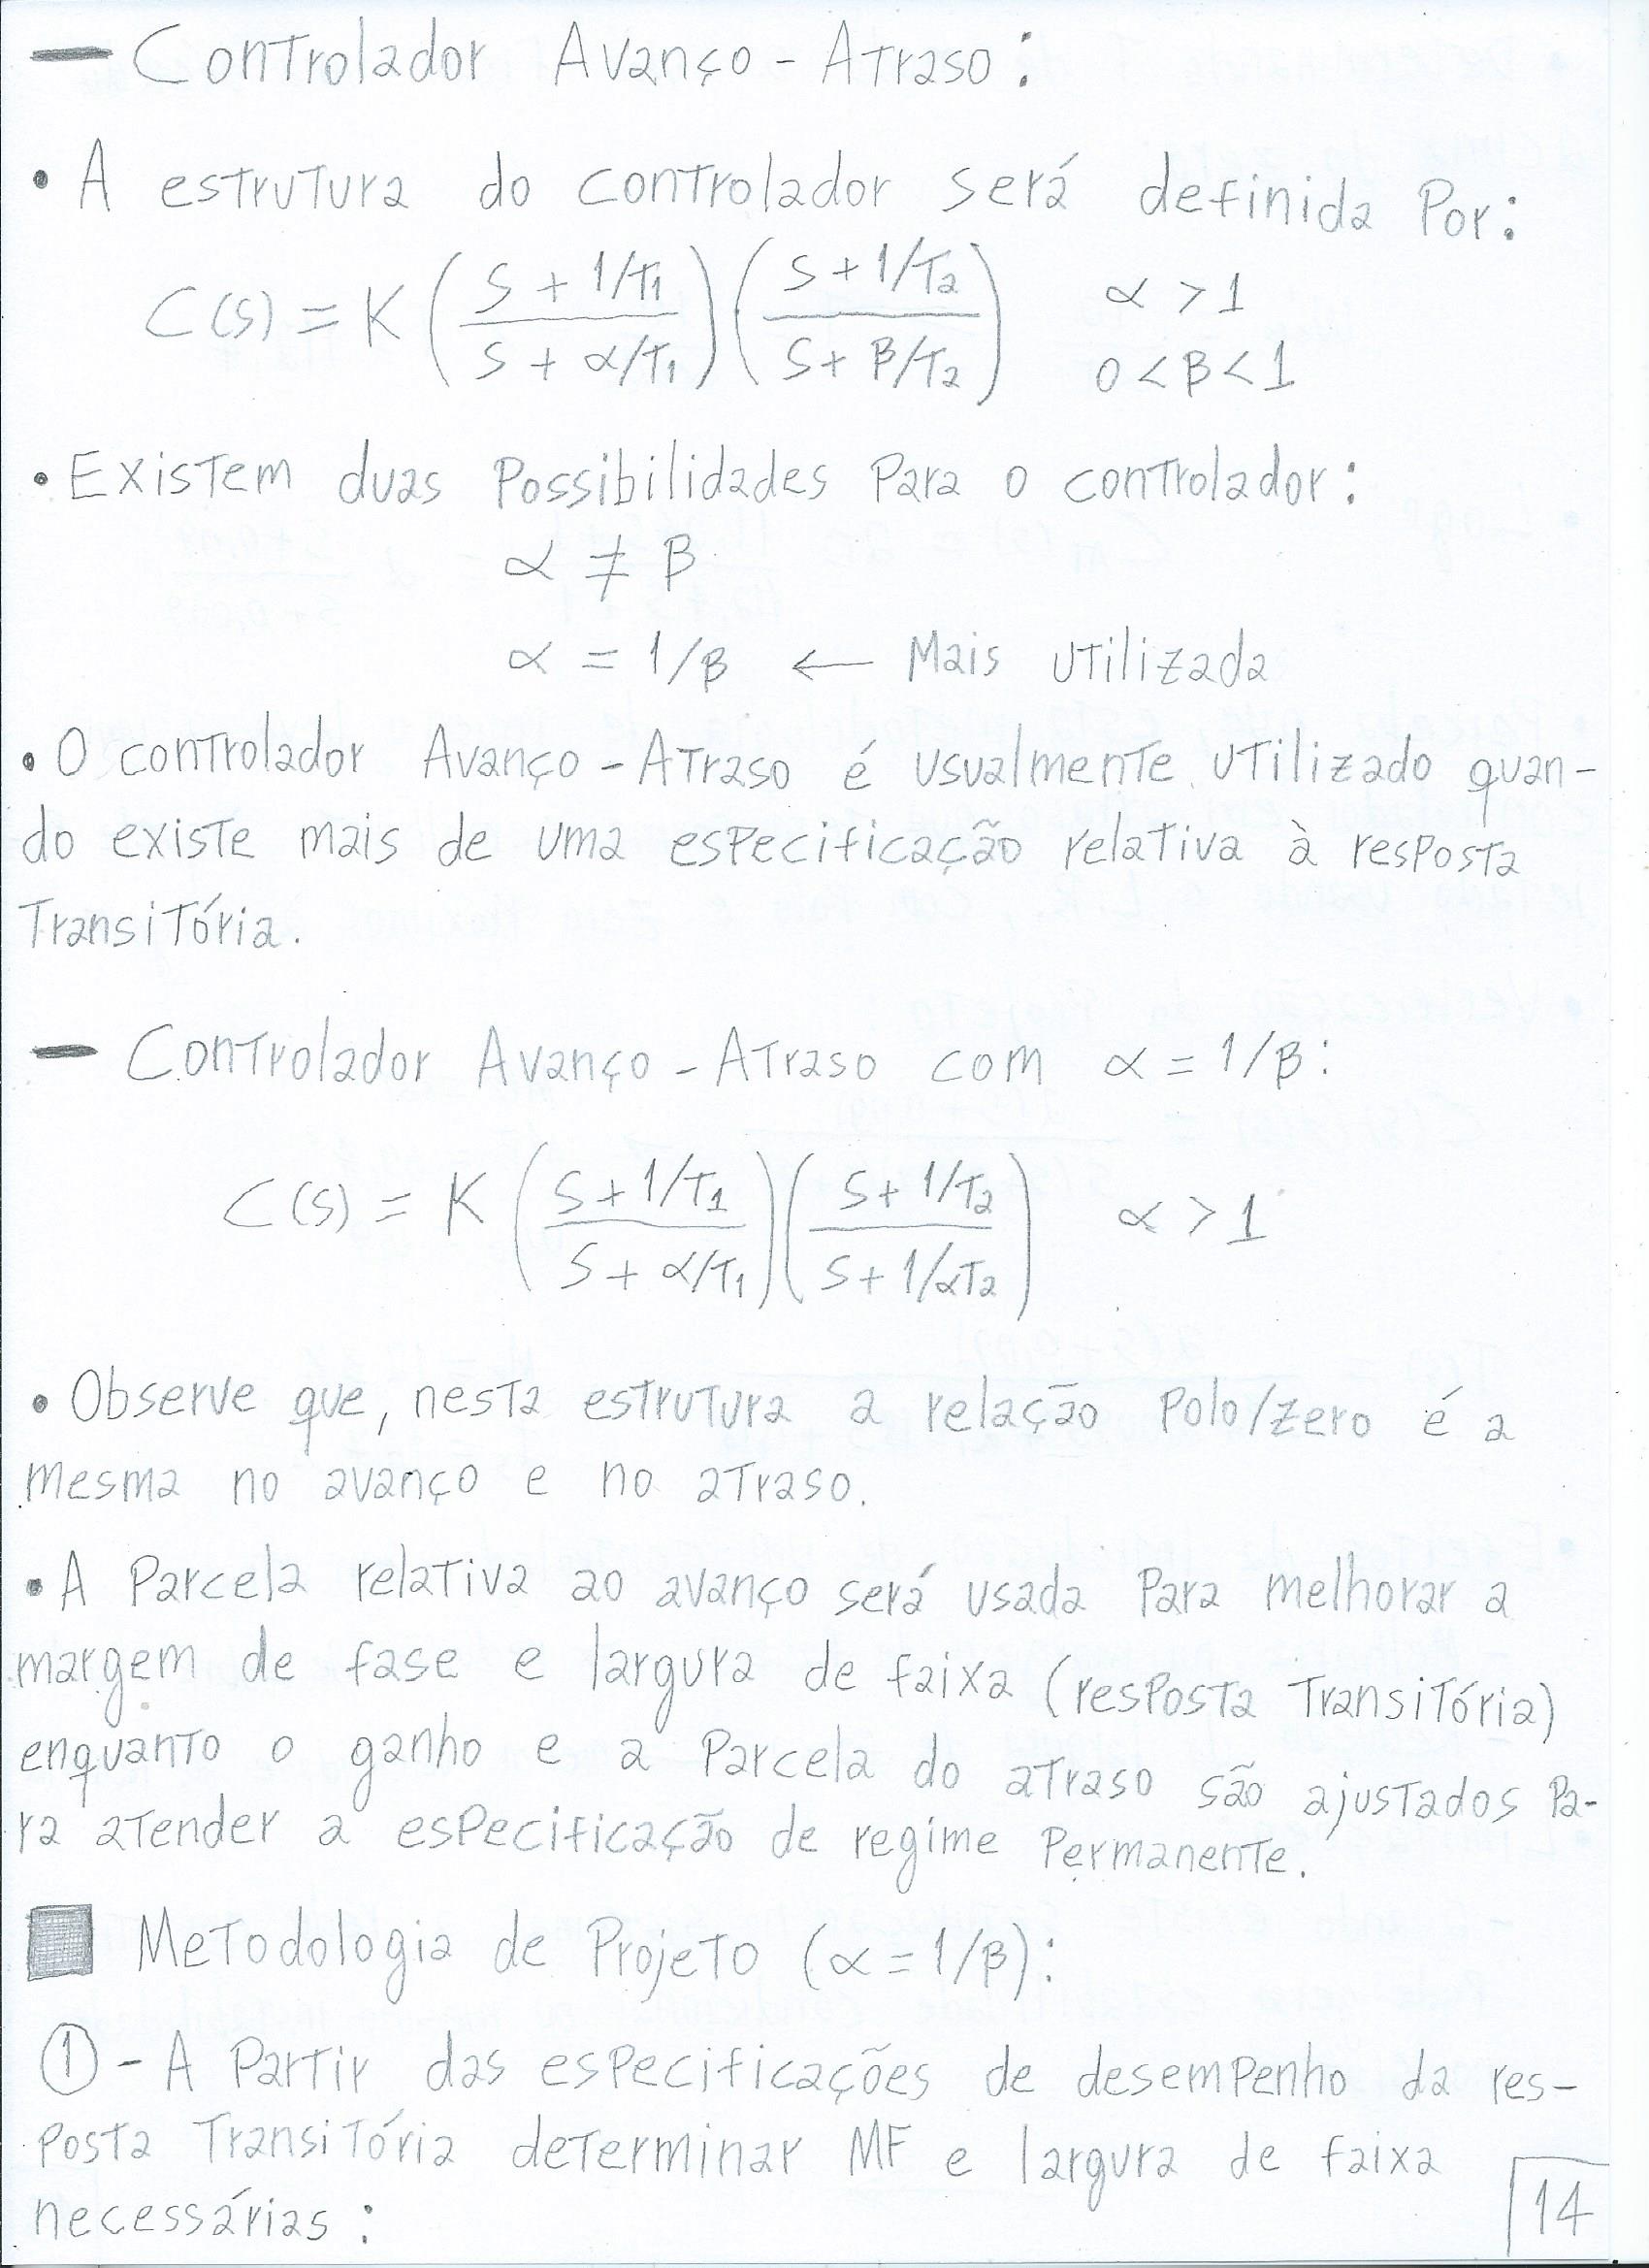 — Controlador Avanço - Atraso:
• A estrutura do controlador será definida por:
C(s) = K ( (s + 1/T₁) / (s + α/T₁) ) ( (s + 1/T₂) / (s + β/T₂) )   α > 1   0 < β < 1
• Existem duas possibilidades para o controlador:
α ≠ β
α = 1/β ← Mais utilizada
• O controlador Avanço - Atraso é usualmente utilizado quan-
do existe mais de uma especificação relativa à resposta
transitória.
— Controlador Avanço - Atraso com α = 1/β:
C(s) = K ( (s + 1/T₁) / (s + α/T₁) ) ( (s + 1/T₂) / (s + 1/αT₂) )   α > 1
• Observe que, nesta estrutura a relação polo/zero é a
mesma no avanço e no atraso.
• A parcela relativa ao avanço será usada para melhorar a
margem de fase e largura de faixa (resposta transitória)
enquanto o ganho e a parcela do atraso são ajustados pa-
ra atender a especificação de regime permanente.
Metodologia de Projeto (α = 1/β):
① - A partir das especificações de desempenho da res-
posta transitória determinar MF e largura de faixa
necessárias:
14